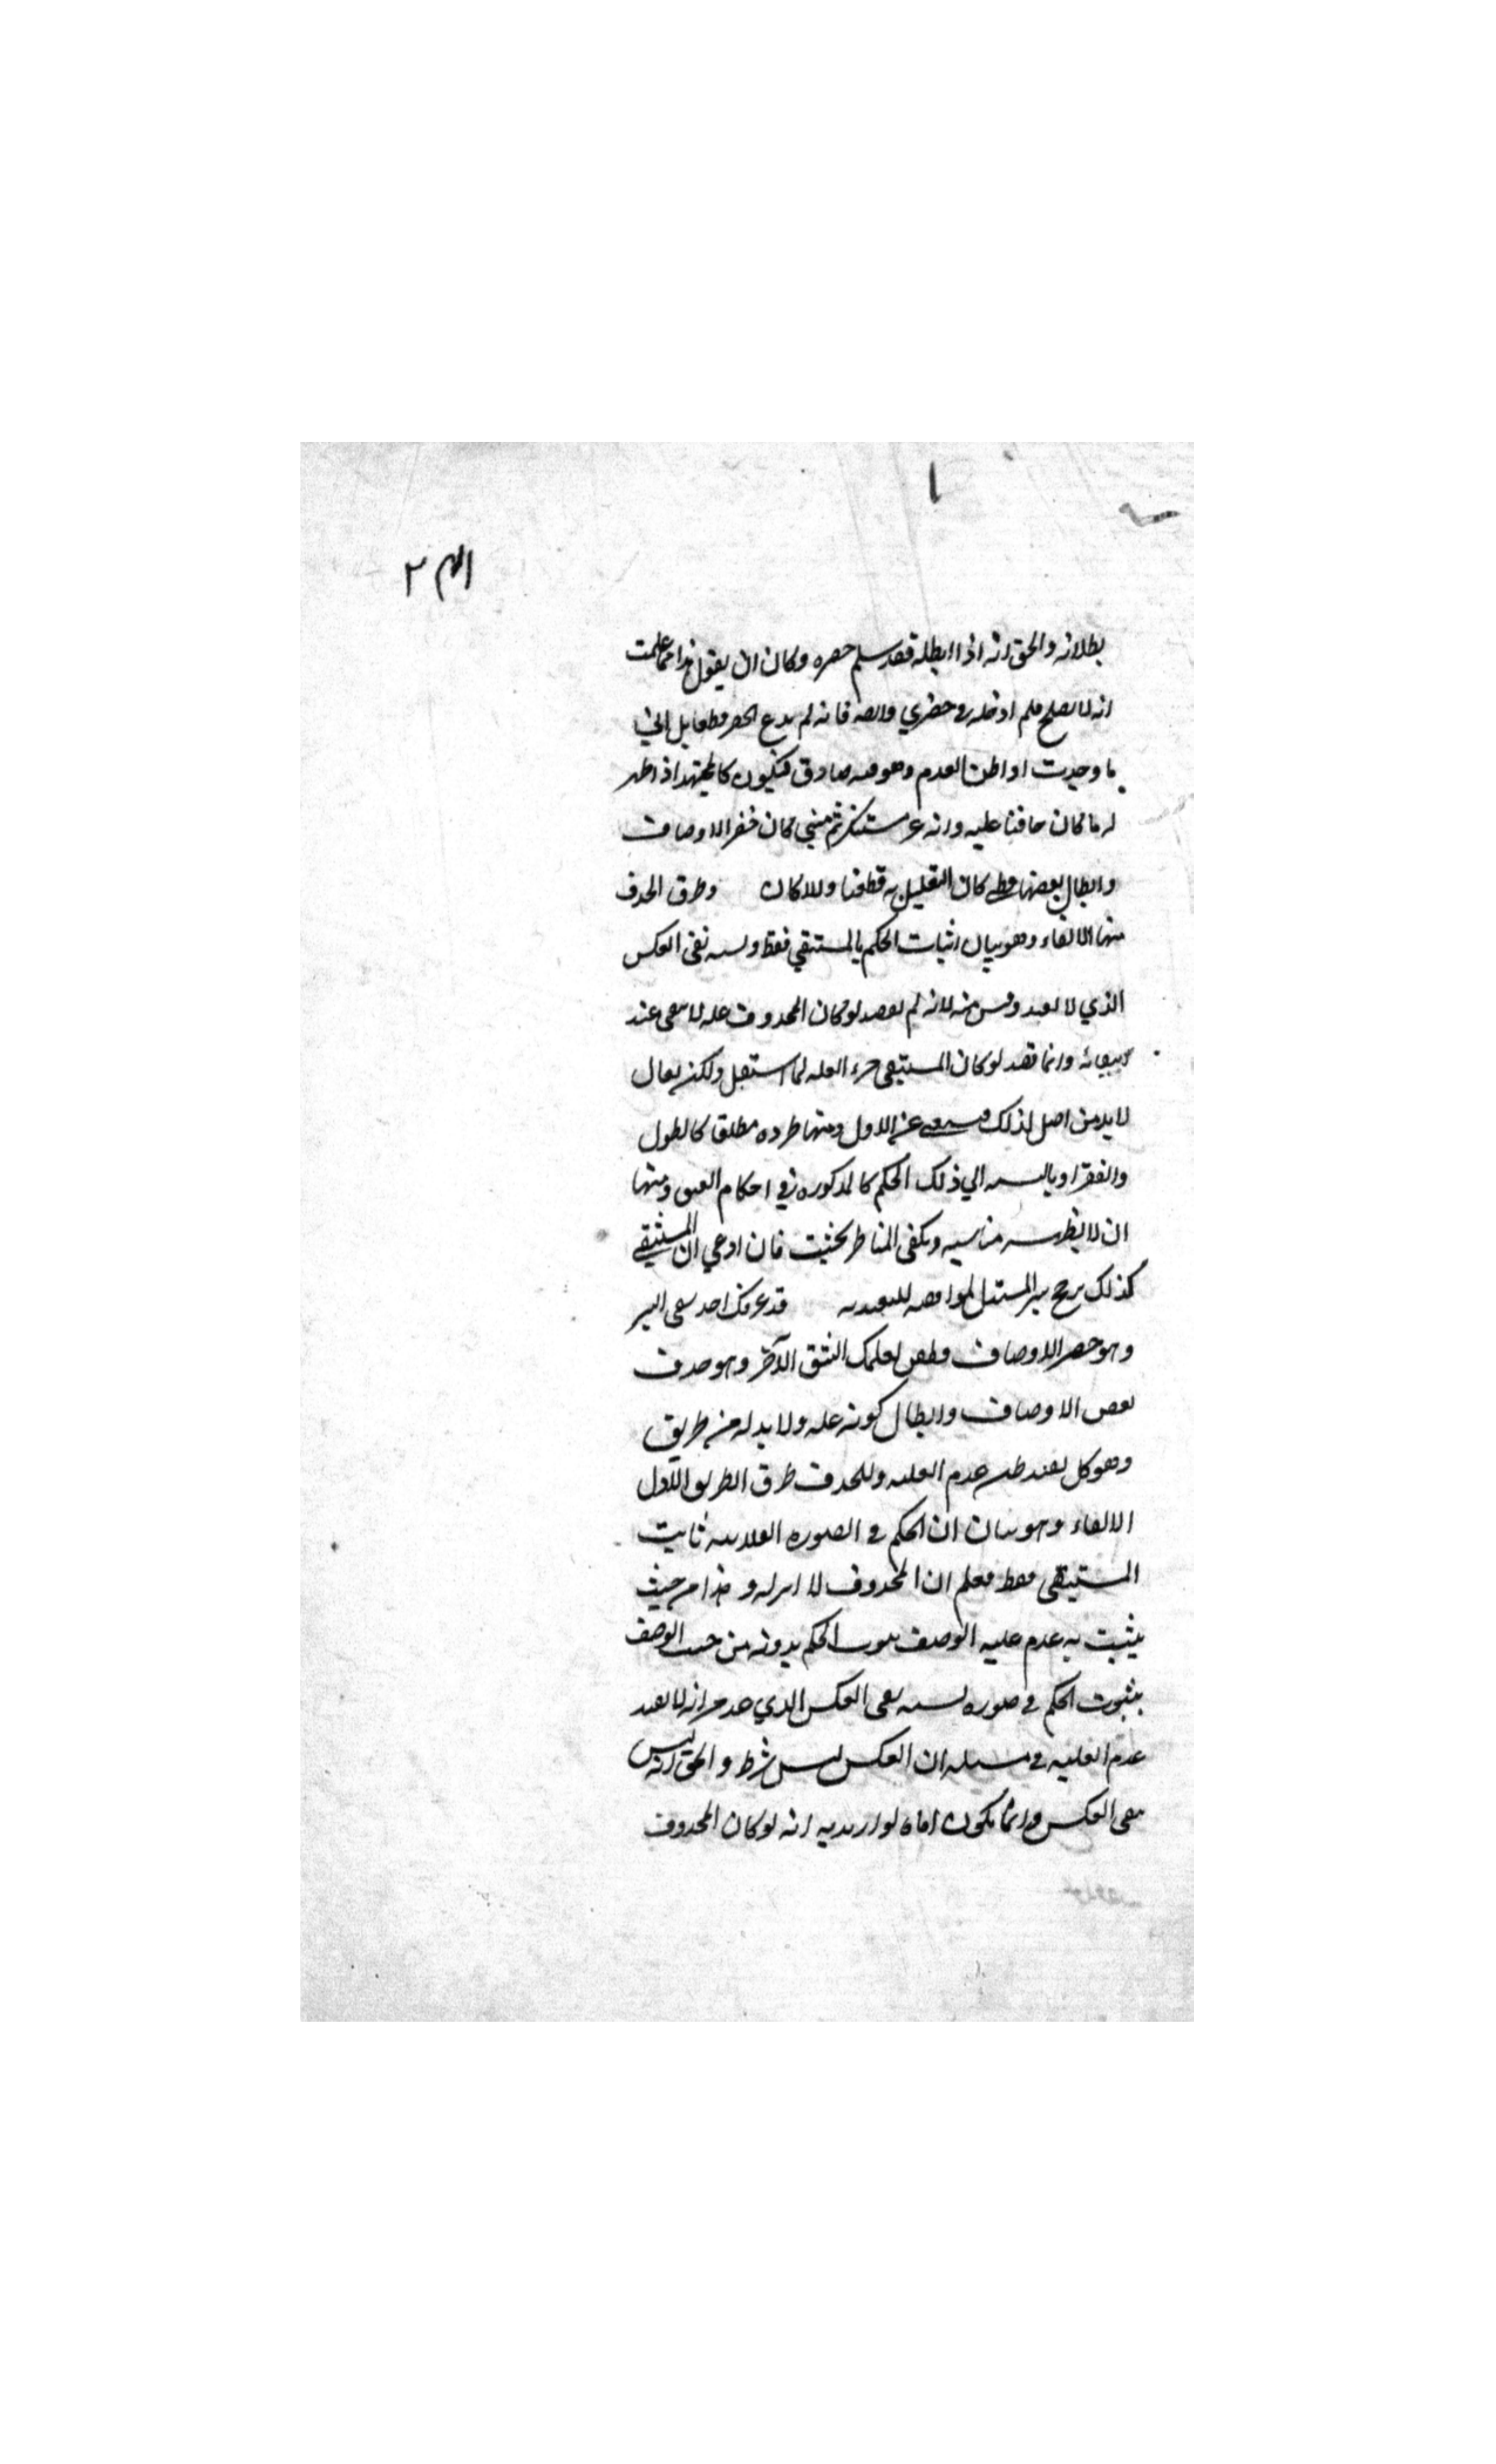 بطلانه والحق انه اذا ابطله فقد سلم حصره وكان ان يقول هذا مما علمت
انه لا يصلح فلم ادخله في حصري وايضا فانه لم يدع الحصر قطعا بل اني
ما وجدت او اظن العدم وهو فيه صادق فيكون كالمجتهد اذا ظهر
له ما كان خافيا عليه وانه غير مستنكر ثم متي كان حصر الاوصاف
وابطال بعضها قطعي كان التعليل به قطعيا والا كان وطرق الحذف
منها الالغاء وهو بيان اثبات الحكم بالمستبقي فقط وليسه نفي العكس
الذي لا يفيد وليس منه لانه لم يقصد لو كان المحذوف عله لانتفي عند
وانما قصد لو كان المستبقي جزء العله لما استقل ولكن يقال
لا بد من اصل لذلك فيستغني عن الاول ومنها طرده مطلقا كالطول
والقصر او بالنسبه الي ذلك الحكم كالذكوره في احكام العتق ومنها
ان لا يظهر مناسبه ويكفي المناظر بحثت فان ادعي ان المستبقي
كذلك يرجح سبر المستدل لموافقه للتعديه قد عرفت احد شقي السبر
وهو حصر الاوصاف وهو حذف
بعض الاوصاف وابطال كونه عله ولا بد له من طريق
وهو كل يفيد ظن عدم العليه وللحذف طرق الطريق الاول
الالغاء وهو بيان ان الحكم في الصوره الفلانيه ثابت
المستبقي فقط فعلم ان المحذوف لا اثر له وهذا من حيث
يثبت به عدم عليه الوصف بثبوت الحكم بدونه من حيث الوصف
بثبوت الحكم في صوره يشبه نفي العكس الذي عدم انه لا يفيد
عدم العليه في مسئله ان العكس ليس شرط والحق انه ليس
نفي العكس وانما يكون اياه لو اريد به انه لو كان المحذوف